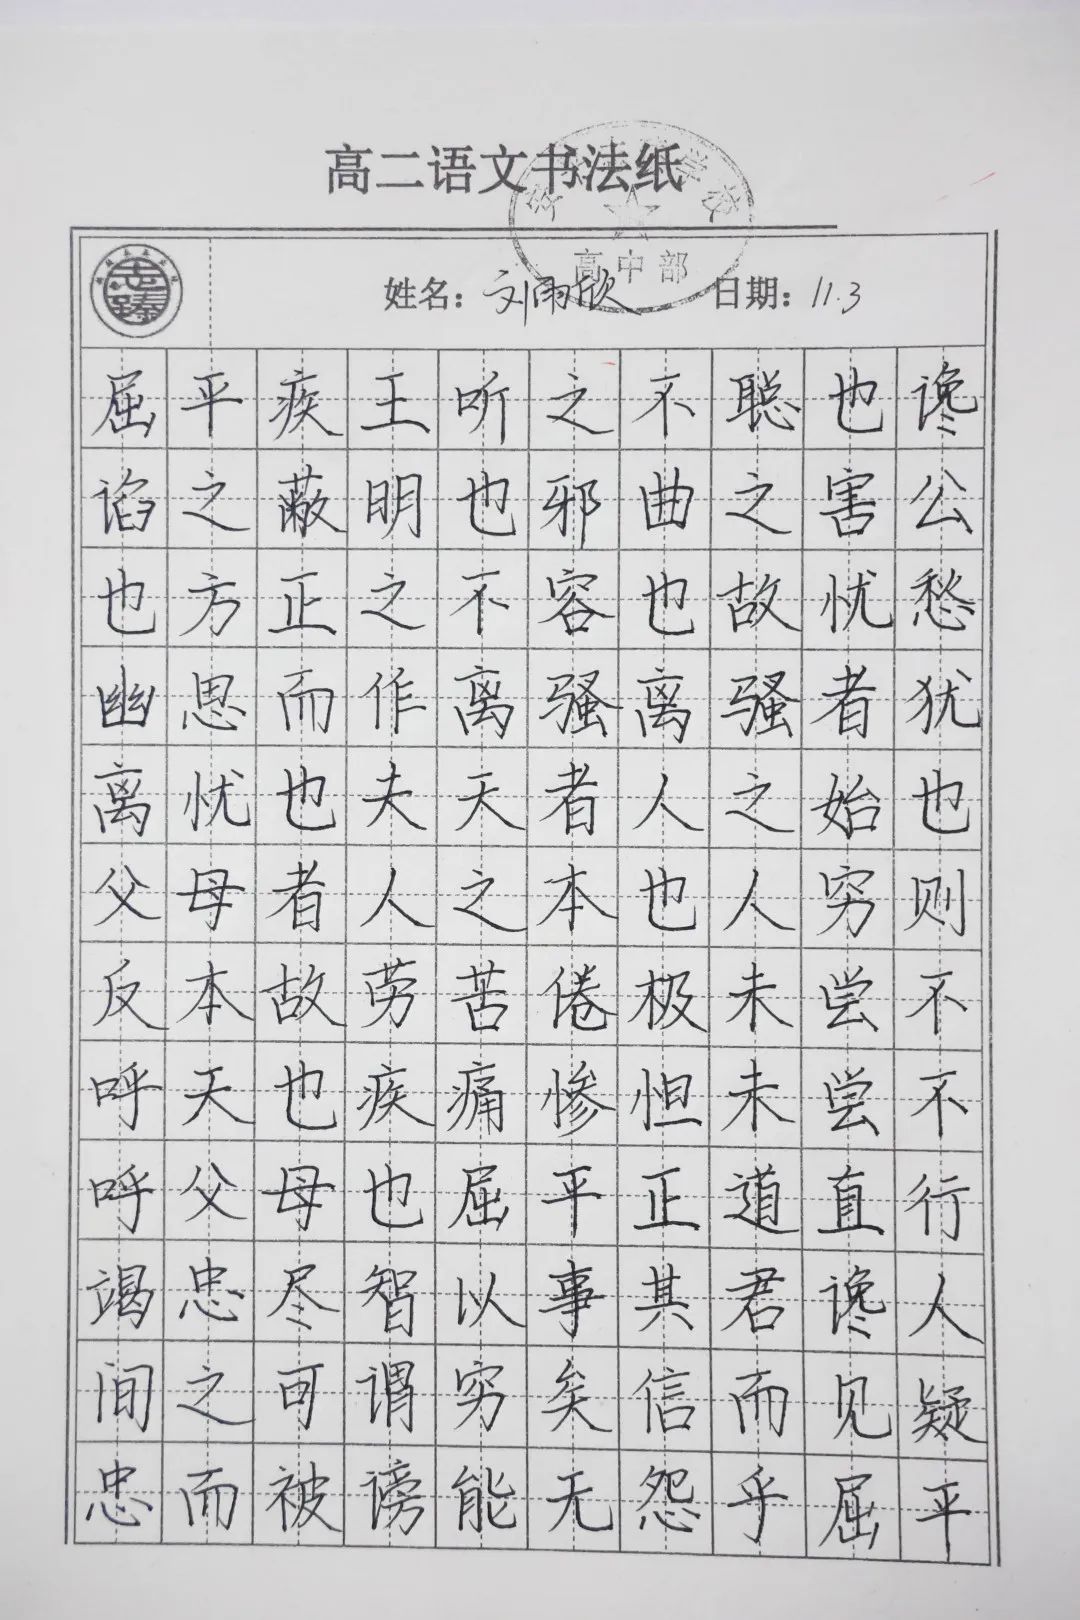 高二语文书法纸
学校
高中部
姓名：刘雨欣 日期：11.3
屈平疾王听之不聪也谗
谄之蔽明也邪曲之害公
也方正之不容也故忧愁
幽思而作离骚离骚者犹
离忧也夫天者人之始也
父母者人之本也人穷则
反本故劳苦倦极未尝不
呼天也疾痛惨怛未尝不
呼父母也屈平正道直行
竭忠尽智以事其君谗人
间之可谓穷矣信而见疑
忠而被谤能无怨乎屈平